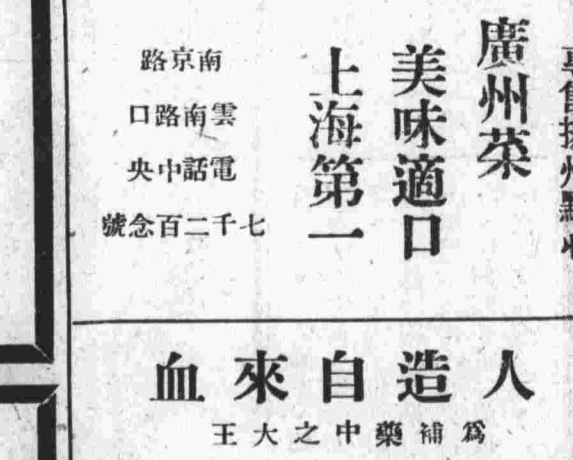 廣州菜
美味適口
上海第一
南京路
雲南路口
電話中央
七千二百念號
人造自來血
爲補藥中之大王